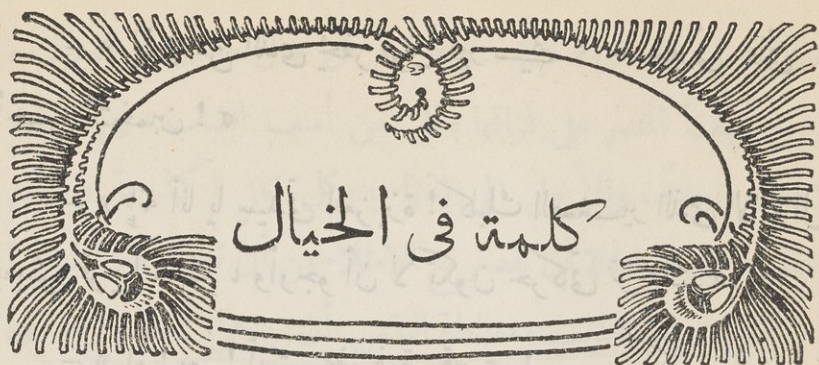 كلمة فى الخيال